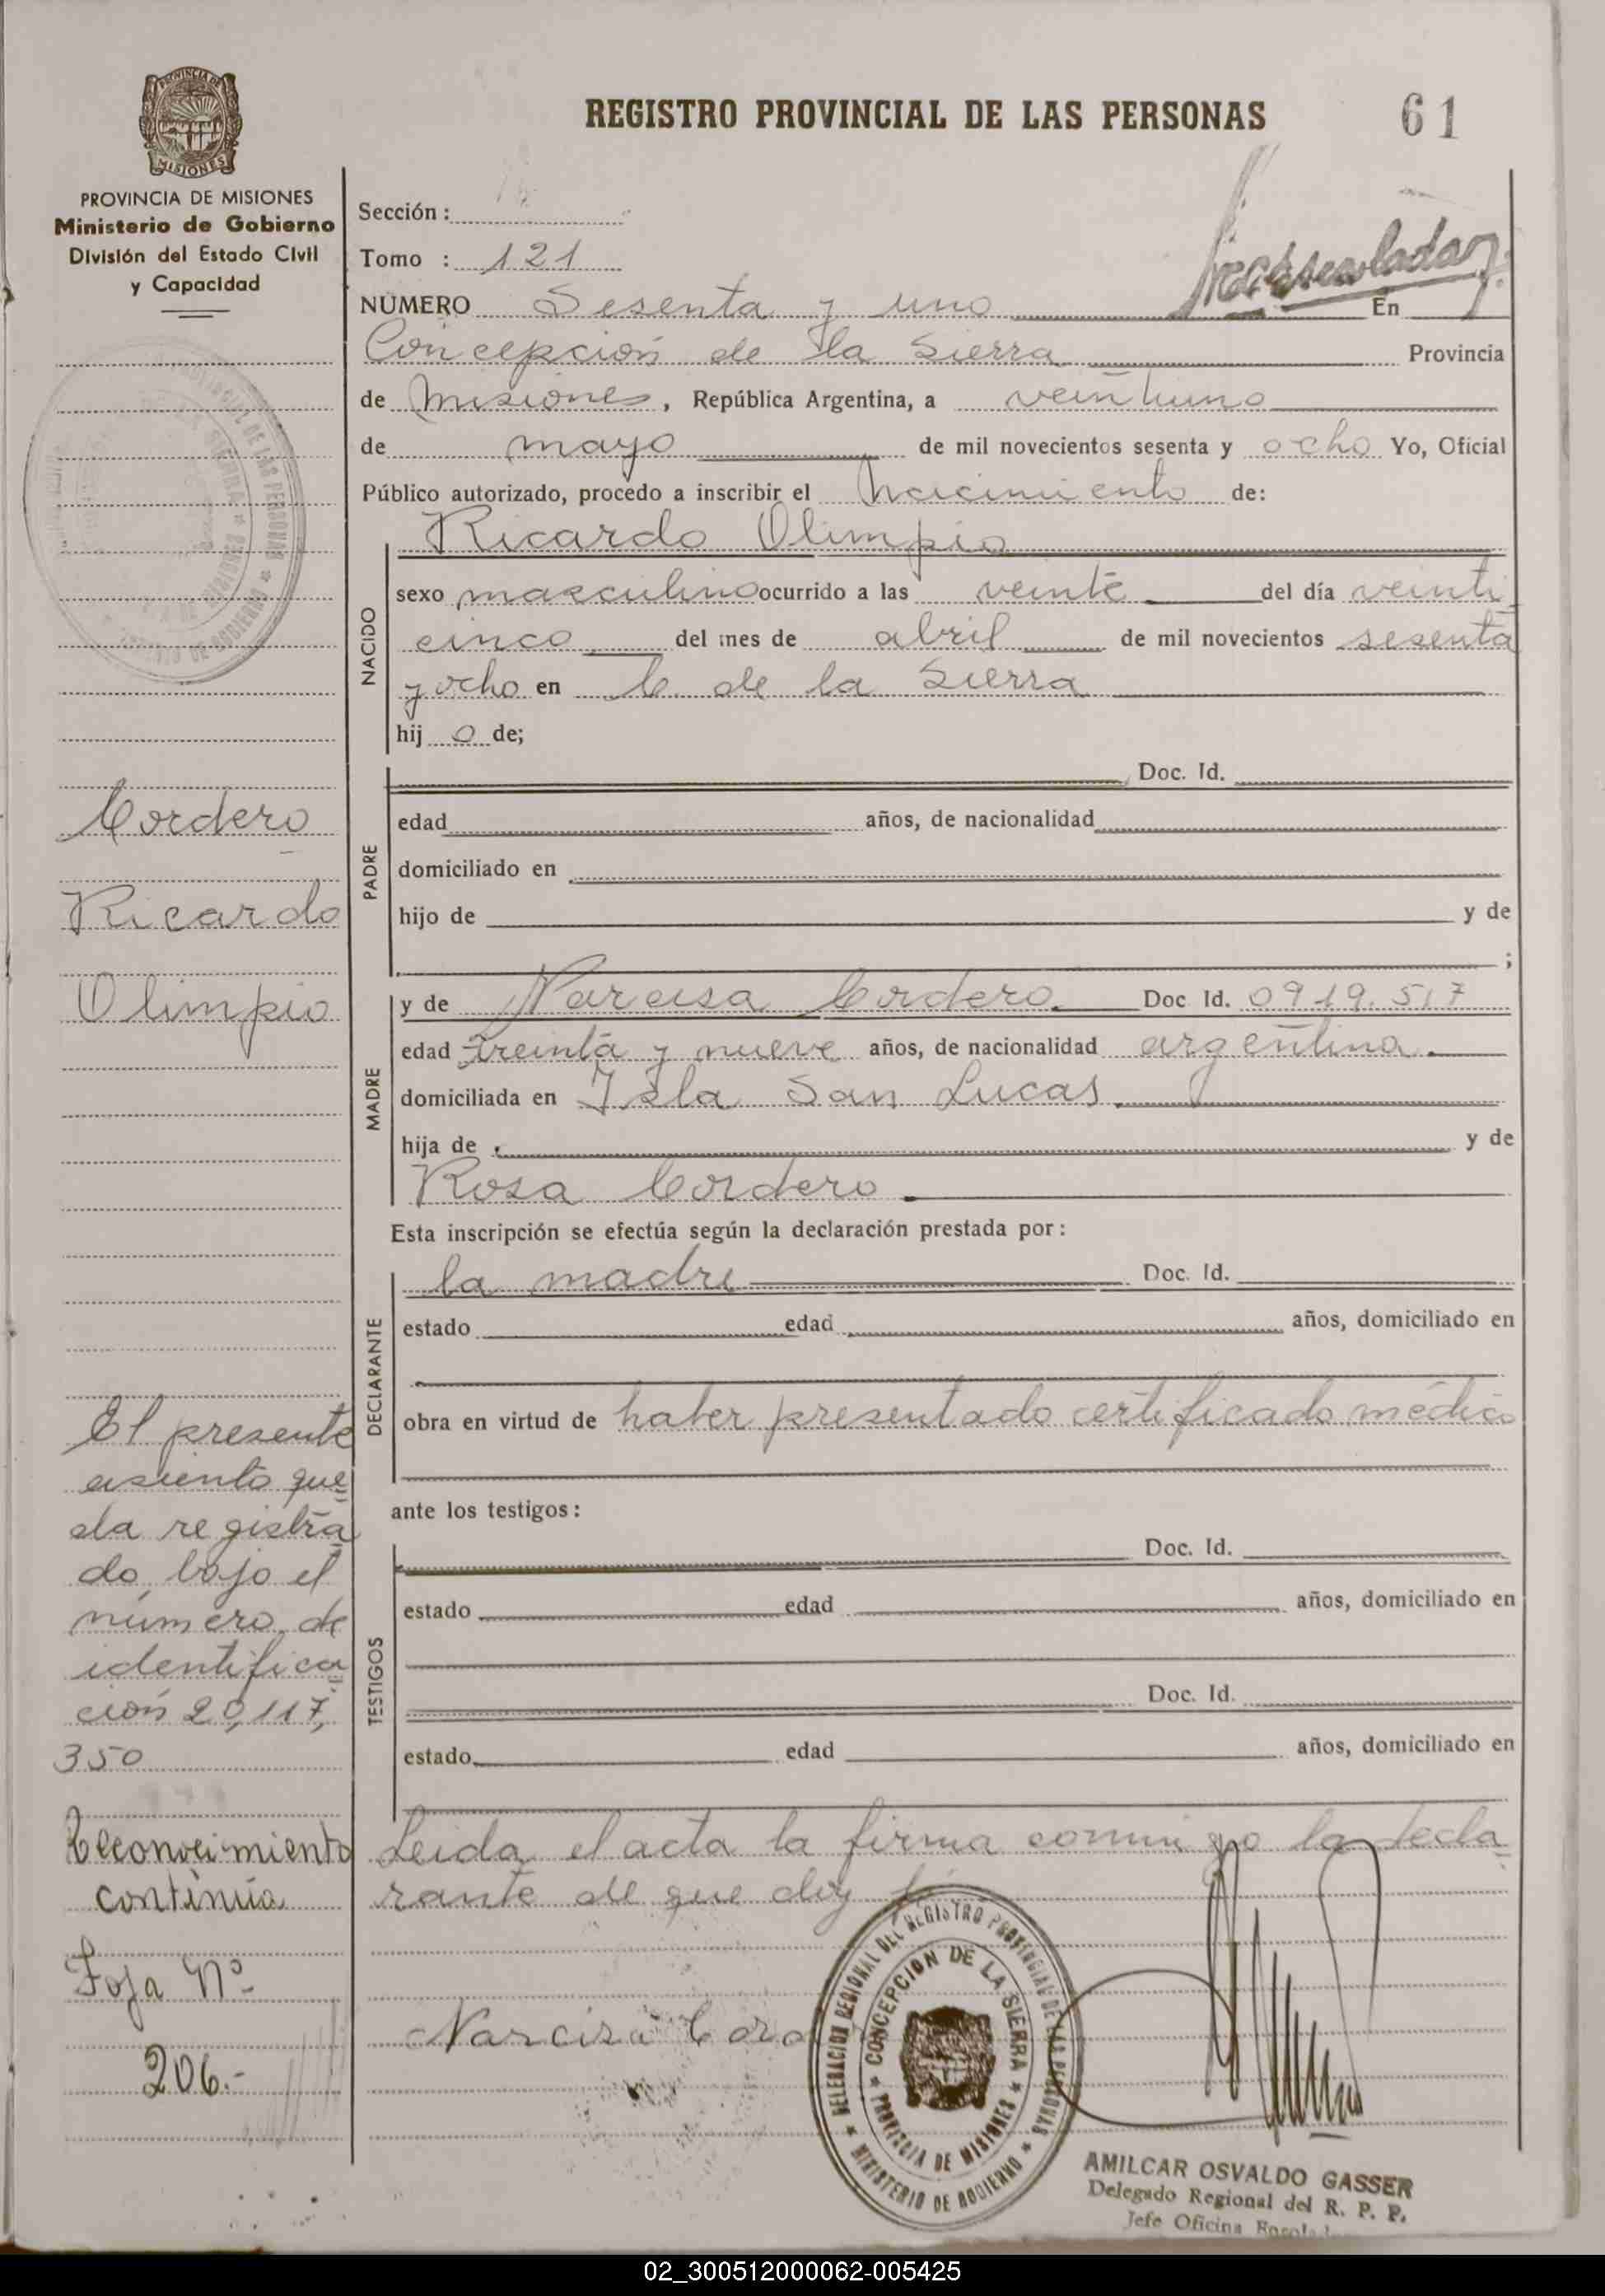 REGISTRO PROVINCIAL DE LAS PERSONAS
61
PROVINCIA DE MISIONES
Ministerio de Gobierno
División del Estado Civil
y Capacidad
Sección :
Tomo : 121
NÚMERO Sesenta y uno En
Concepción de la Sierra Provincia
de Misiones, República Argentina, a veintiuno
de mayo de mil novecientos sesenta y ocho Yo, Oficial
Público autorizado, procedo a inscribir el Nacimiento de:
NACIDO
Ricardo Olimpio
sexo masculino ocurrido a las veinte del día veinti
cinco del mes de abril de mil novecientos sesenta
y ocho en C. de la Sierra
hij o de;
PADRE
Doc. Id.
edad años, de nacionalidad
domiciliado en
hijo de y de
;
MADRE
y de Narcisa Cordero. Doc Id. 0919.517
edad treinta y nueve años, de nacionalidad argentina.
domiciliada en Isla San Lucas.
hija de y de
Rosa Cordero.
Esta inscripción se efectúa según la declaración prestada por:
DECLARANTE
la madre Doc. Id.
estado edad años, domiciliado en
obra en virtud de haber presentado certificado médico
ante los testigos:
TESTIGOS
Doc. Id.
estado edad años, domiciliado en
Doc. Id.
estado edad años, domiciliado en
Leida el acta la firma conmigo la decla
rante de que doy fé
Narcisa Cord
DELEGACION REGIONAL DEL REGISTRO PROVINCIAL DE LAS PERSONAS
* MINISTERIO DE GOBIERNO *
CONCEPCION DE LA SIERRA
* PROVINCIA DE MISIONES *
AMILCAR OSVALDO GASSER
Delegado Regional del R. P. P.
Jefe Oficina
Cordero
Ricardo
Olimpio
El presente
asiento que
da registra
do bajo el
número de
identifica
ción 20,117,
350
Reconocimiento
continúa
Foja Nº
206.-
02_300512000062-005425